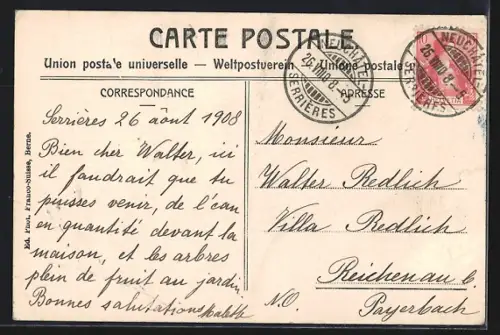 CARTE POSTALE
Union postale universelle — Weltpostverein — Unione postale
CORRESPONDANCE
ADRESSE
NEUCHÂTEL
SERRIÈRES
NEUCHÂTEL
SERRIÈRES
Ed. Phot. Franco-Suisse, Berne.
Serrières 26 août 1908
Bien cher Walter, ici
il faudrait que tu
puisses venir, de l'eau
en quantité devant la
maison, et les arbres
plein de fruit au jardin
Bonnes salutations
Monsieur
Walter Redlich
Villa Redlich
Reichenau b.
N.O. Payerbach